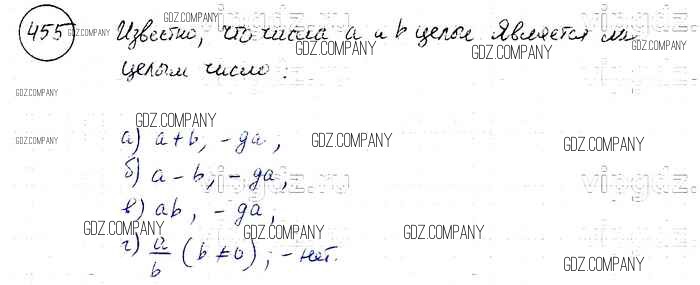 455 Известно, что числа a и b целые Является ли
целым число:
а) a+b, - да,
б) a - b, - да,
в) ab, - да,
г) a/b (b ≠ 0); - нет.
GDZ.COMPANY
GDZ.COMPANY
GDZ.COMPANY
GDZ.COMPANY
GDZ.COMPANY
GDZ.COMPANY
GDZ.COMPANY
GDZ.COMPANY
GDZ.COMPANY
GDZ.COMPANY
GDZ.COMPANY
GDZ.COMPANY
GDZ.COMPANY
GDZ.COMPANY